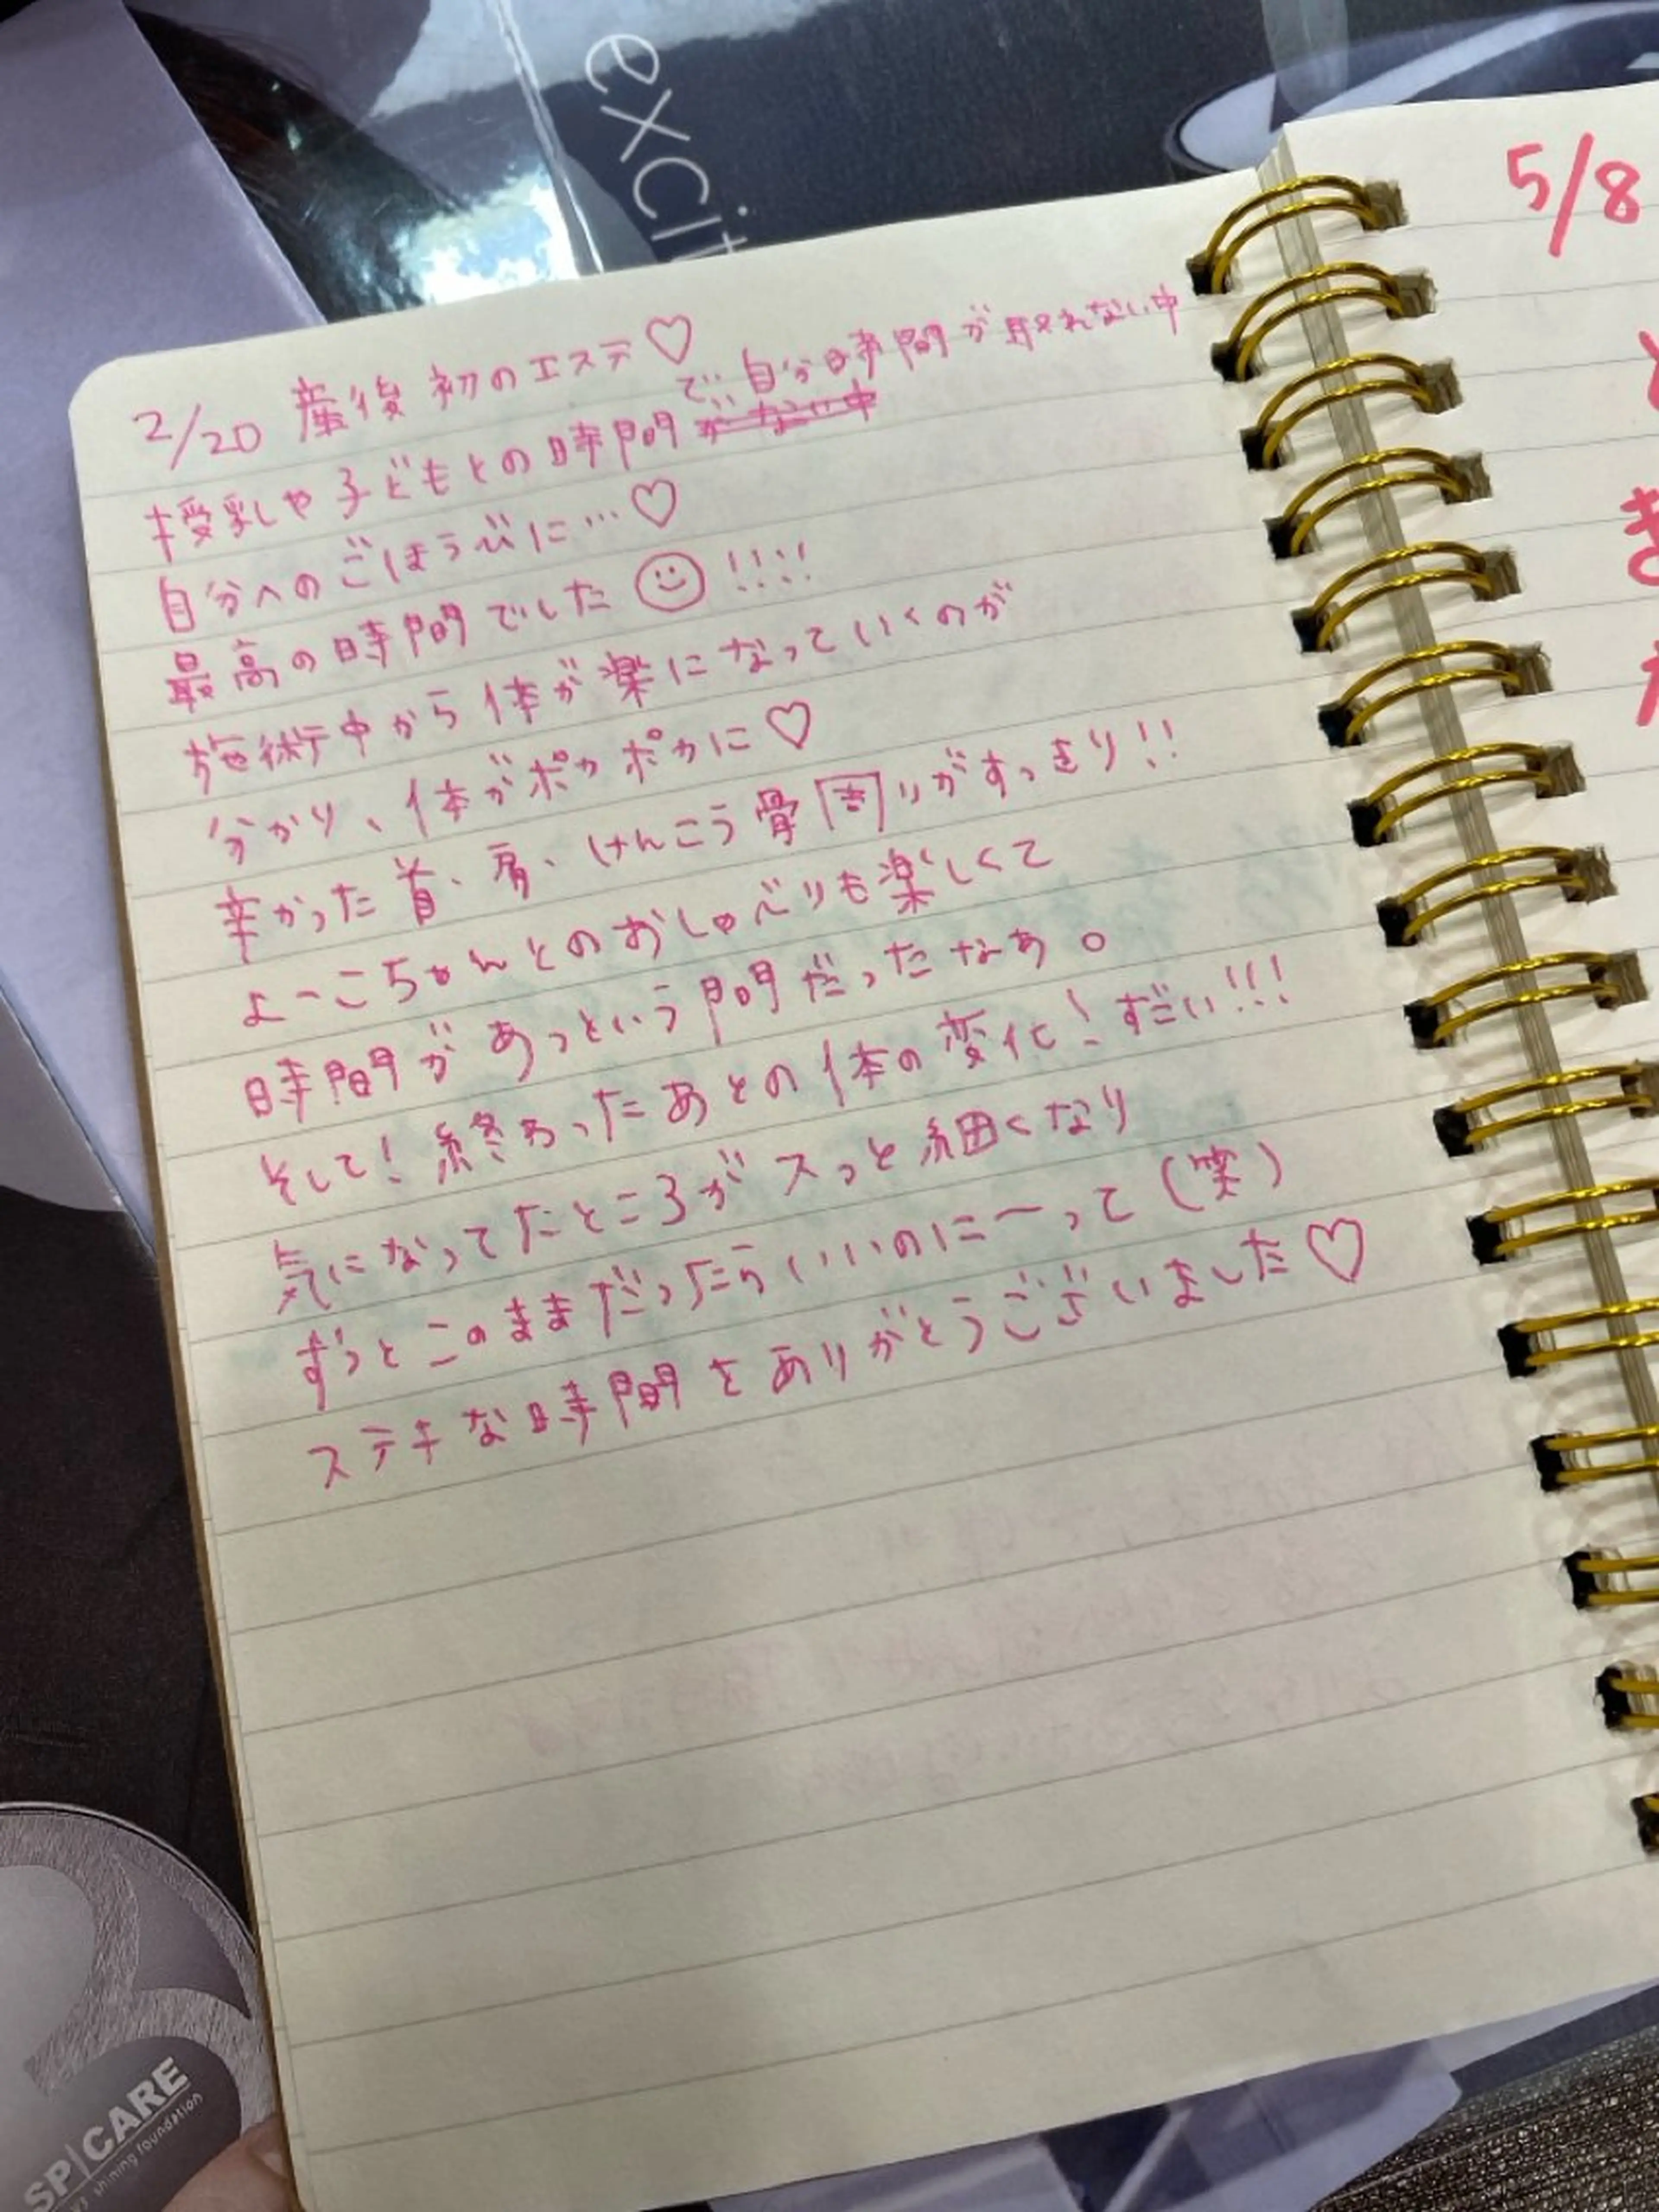 excit
2/20 産後初のエステ♡
授乳や子どもとの時間で、自分時間が取れない中
自分へのごほうびに…♡
最高の時間でした☺!!!!
施術中から体が楽になっていくのが
分かり、体がポカポカに♡
辛かった首、肩、けんこう骨周りがすっきり!!
よーこちゃんとのおしゃべりも楽しくて
時間があっという間だったなぁ。
そして!終わったあとの体の変化!すごい!!!
気になってたところがスっと細くなり
ずっとこのままだったらいいのにーって(笑)
ステキな時間をありがとうございました♡
5/8
SP|CARE
shining foundation